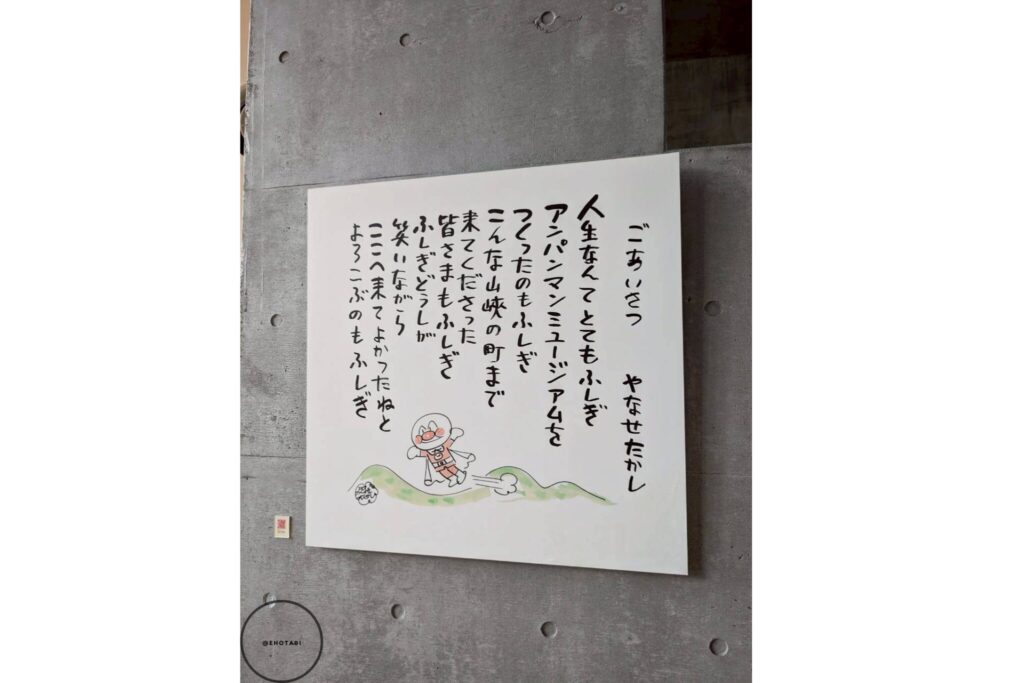 ごあいさつ　やなせたかし
人生なんてとてもふしぎ
アンパンマンミュージアムを
つくったのもふしぎ
こんな山峡の町まで
来てくださった
皆さまもふしぎ
ふしぎどうしが
笑いながら
ここへ来てよかったねと
よろこぶのもふしぎ
@ENOTABI